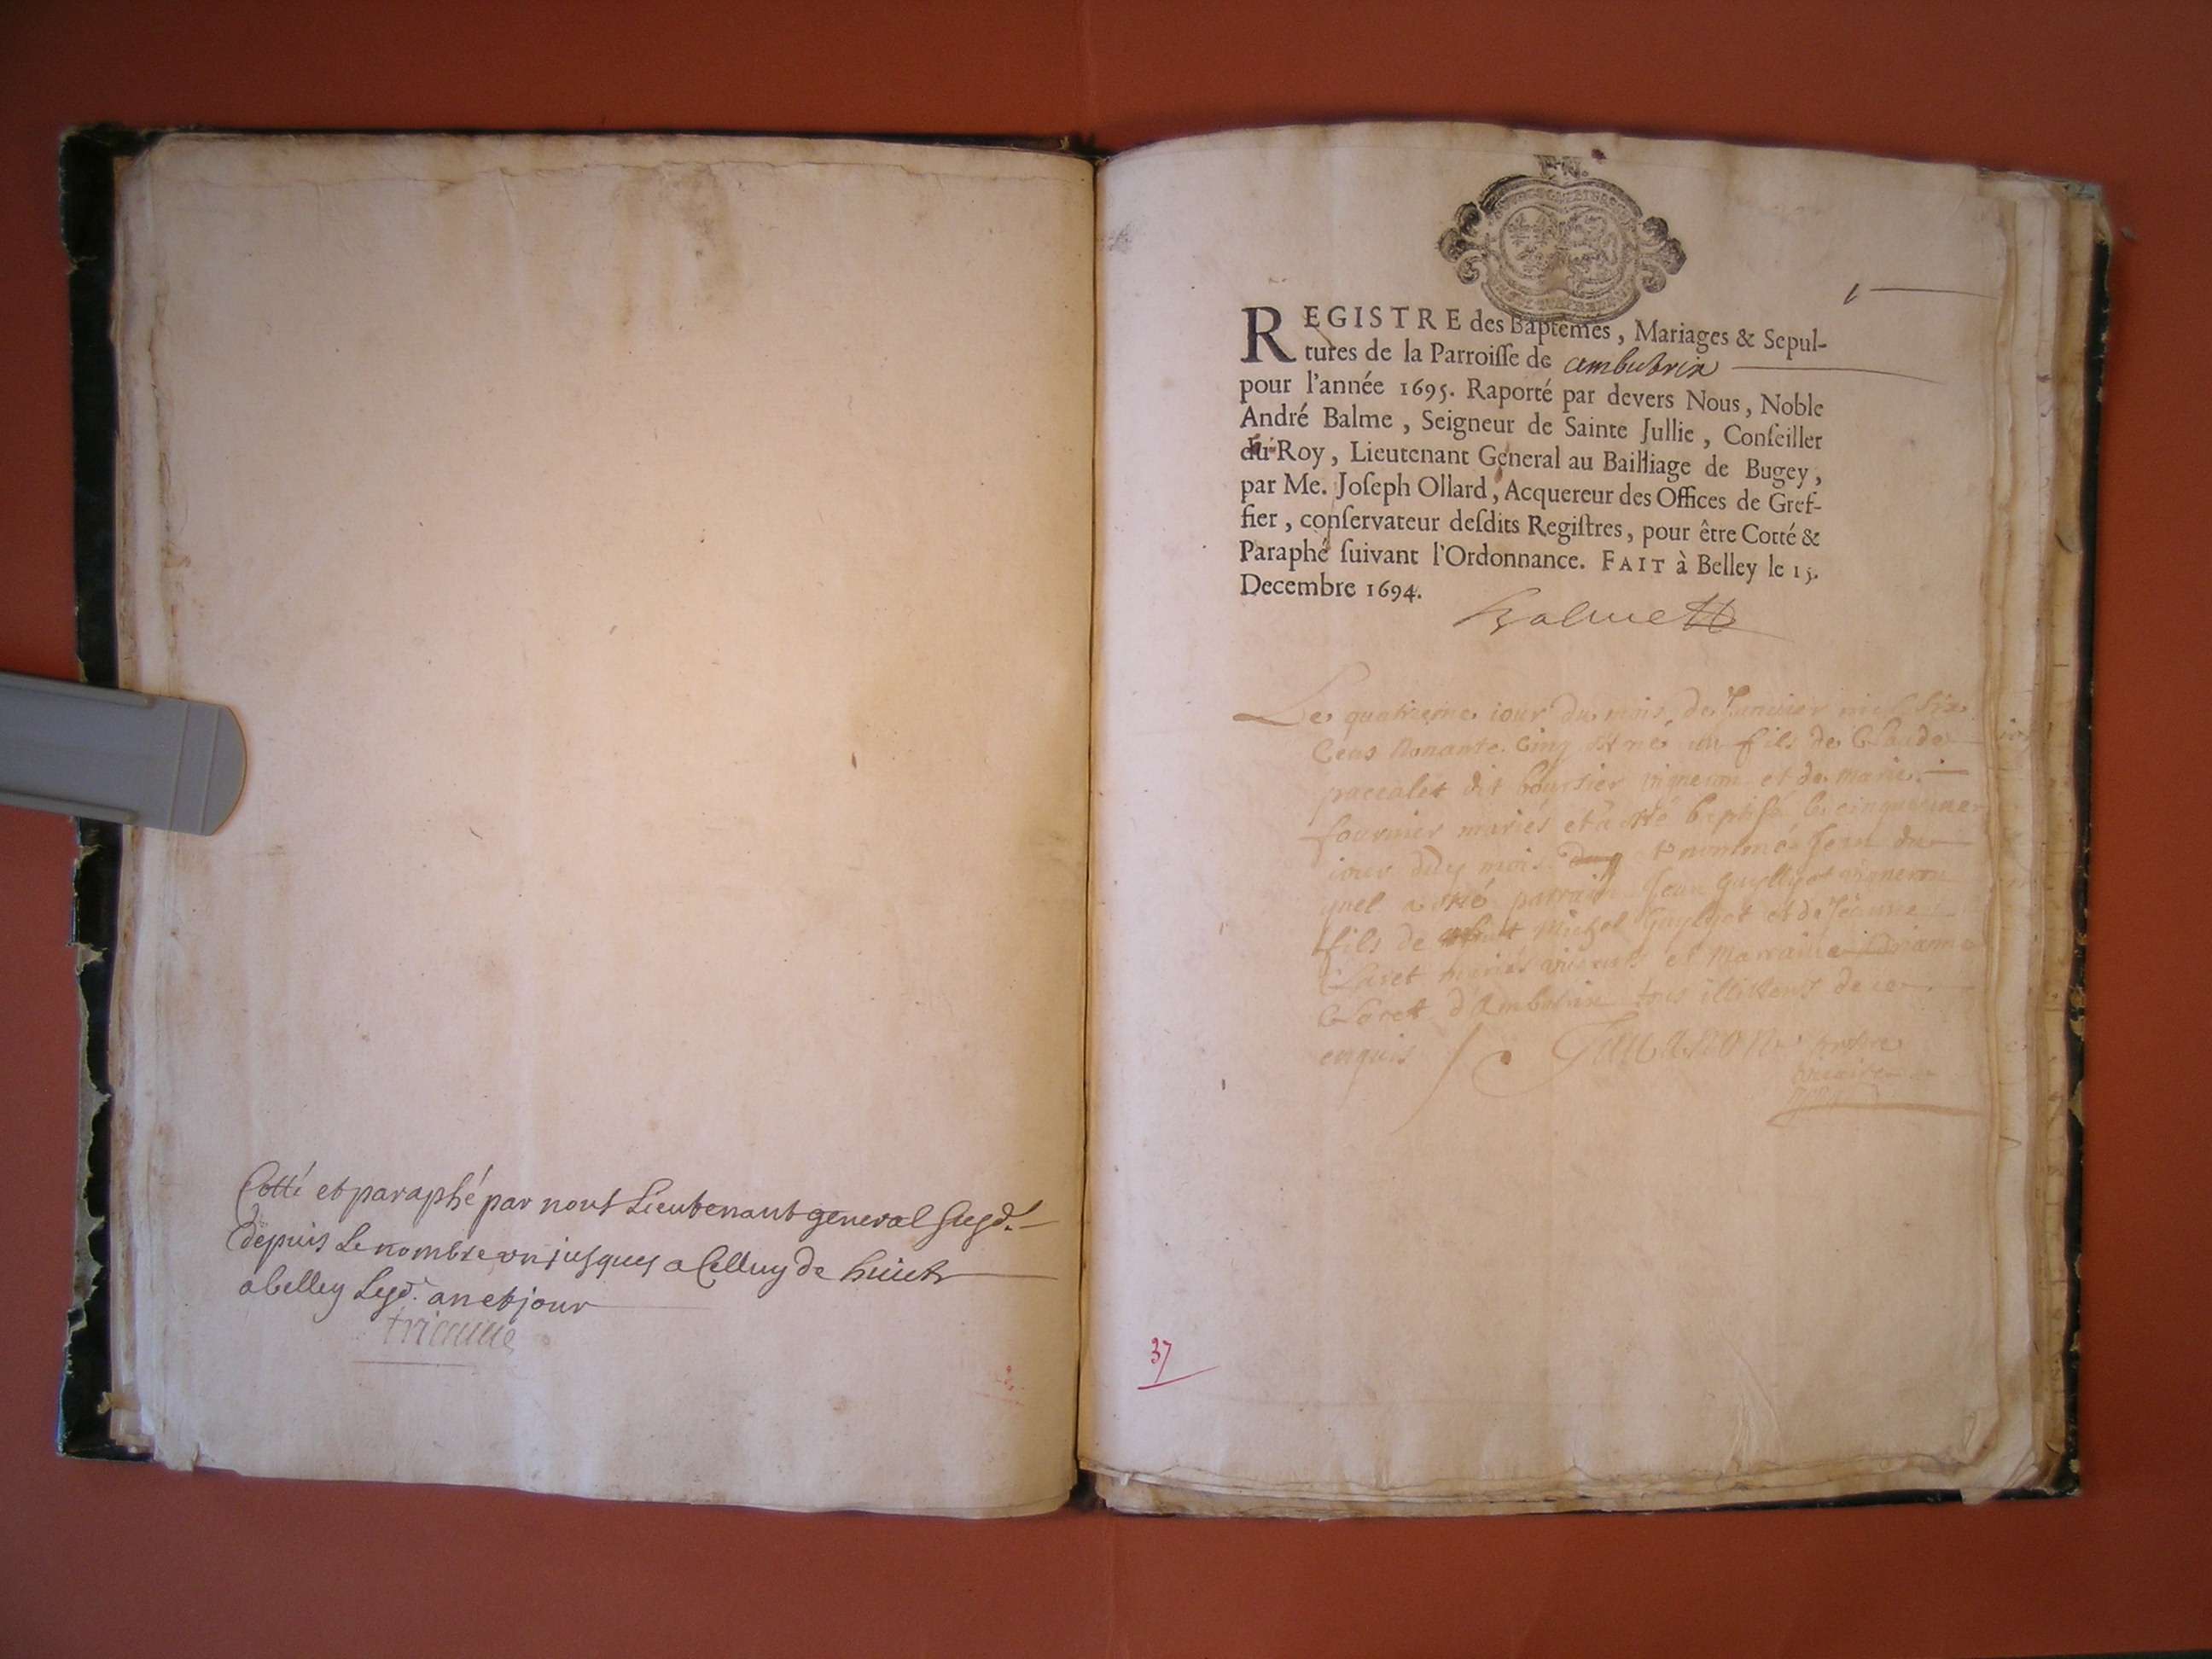 Cotté et paraphé par nous Lieutenant general susd.t
depuis le nombre un jusques a Celluy de huict
a belley lesd. an et jour
tricaud
1
REGISTRE des Baptêmes, Mariages & Sepul-
tures de la Parroisse de ambutrix
pour l'année 1695. Raporté par devers Nous, Noble
André Balme, Seigneur de Sainte Jullie, Conseiller
du Roy, Lieutenant General au Bailliage de Bugey,
par Me. Joseph Ollard, Acquereur des Offices de Gref-
fier, conservateur desdits Registres, pour être Cotté &
Paraphé suivant l'Ordonnance. FAIT à Belley le 15.
Decembre 1694.
Balme
Le quatrieme iour du mois de Janvier mil six
Cens Nonante Cinq est né un fils de Claude
dit boursier vigneron et de marie
fournier mariés et a esté baptisé le cinquieme
iour mois et nommé Jean du
quel a esté parrain Jean Guyllyot vigneron
fils de Michel Guyllyot et de Jeanne
Claret mariés et Marraine
Claret d'Ambutrix tous illiterés de ce
enquis
37